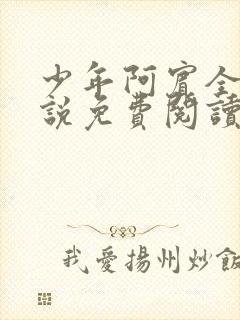 少年阿賓全
說免費閱讀
我愛揚州炒飯